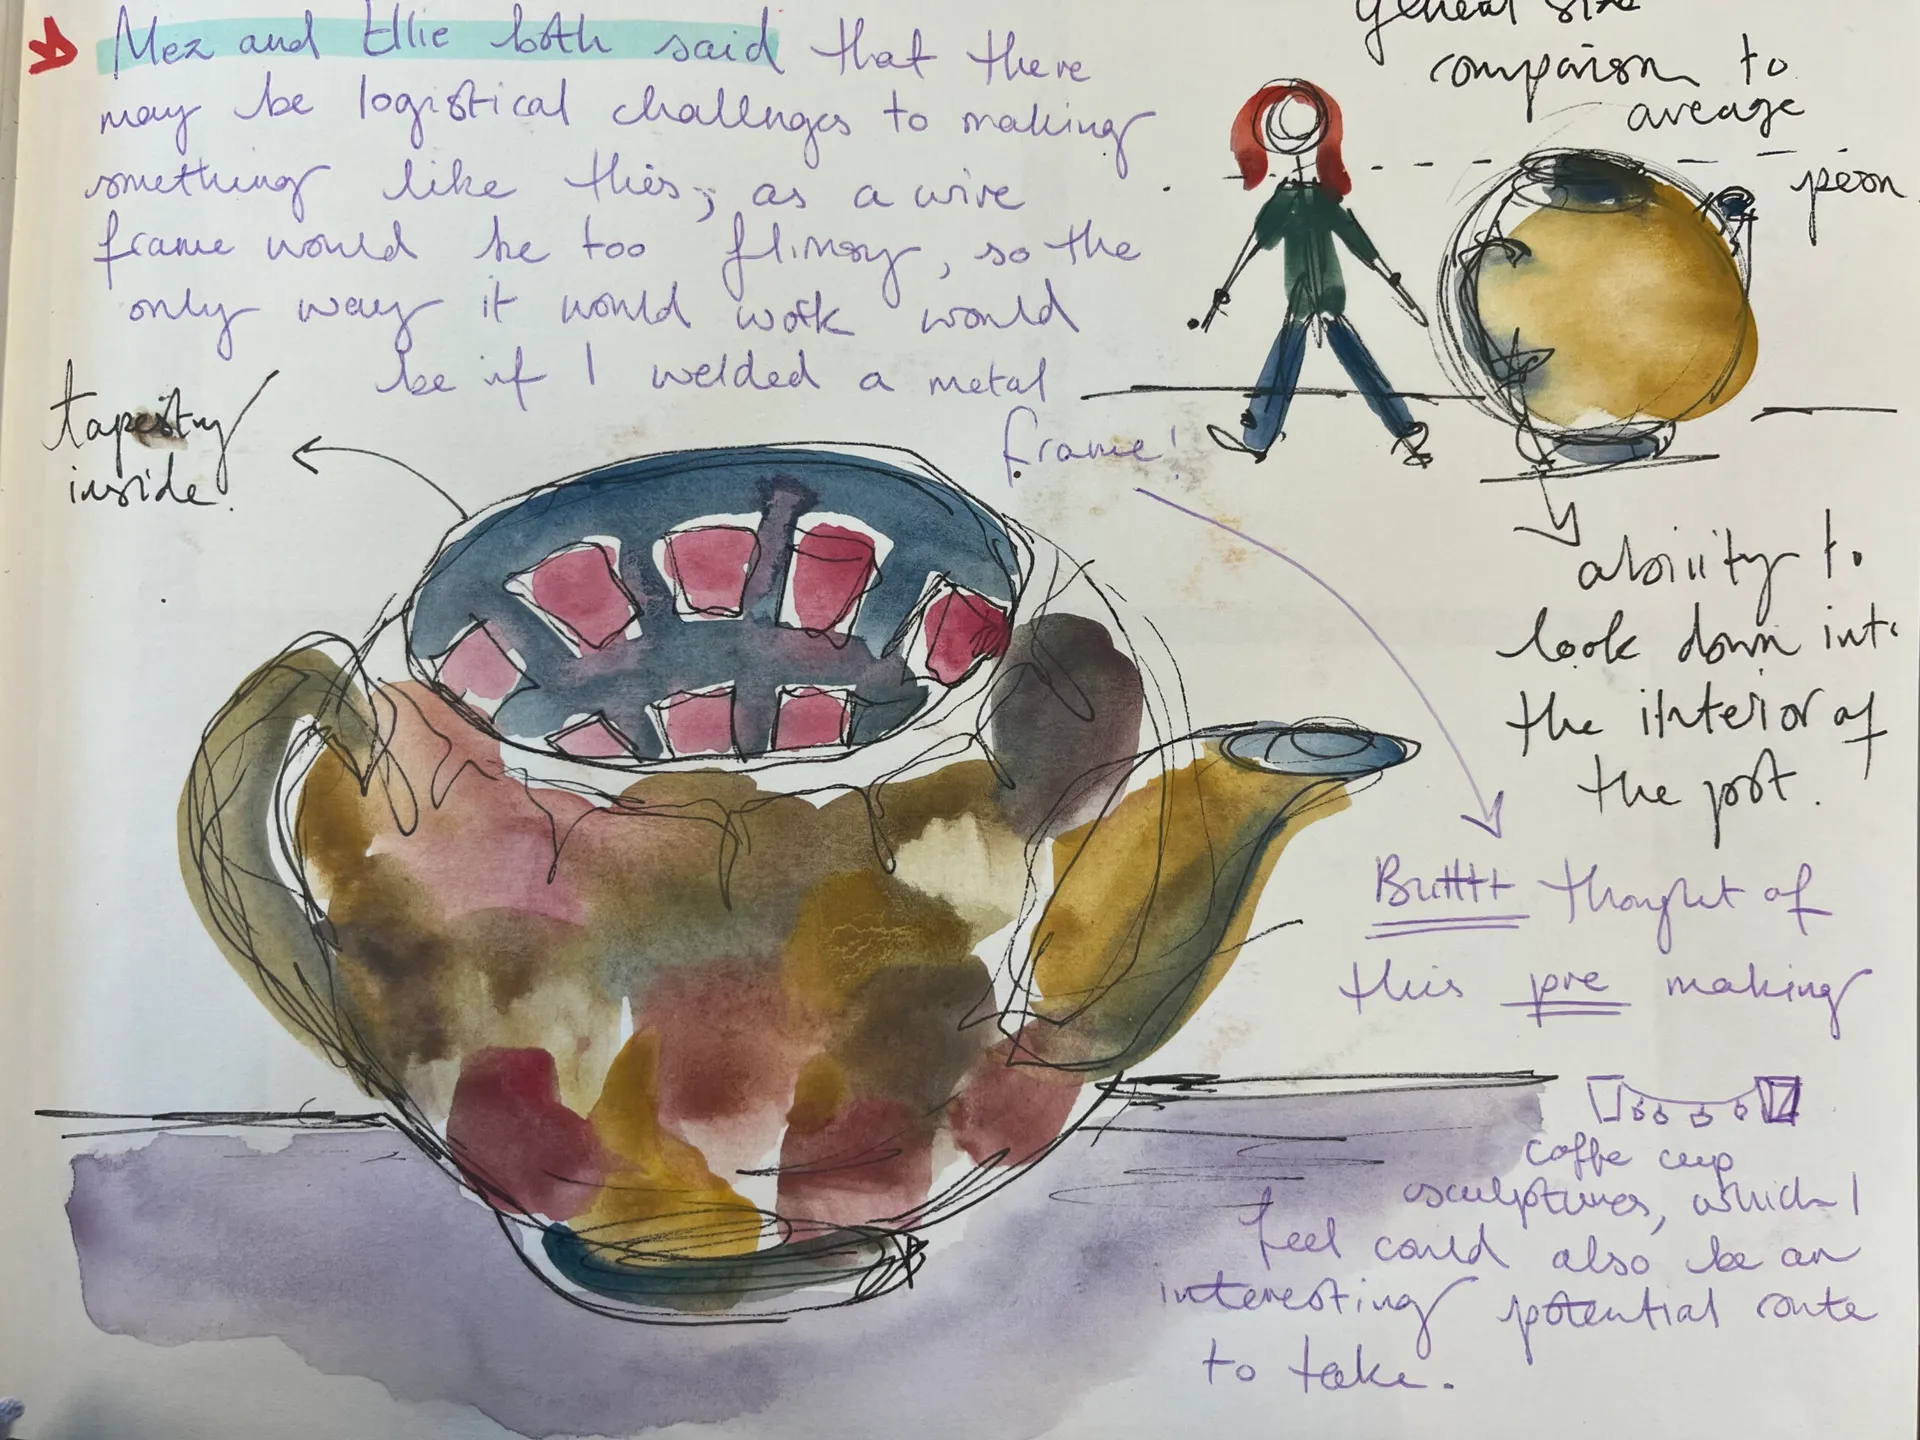 Mez and Ellie both said that there
may be logistical challenges to making
something like this, as a wire
frame would be too flimsy, so the
only way it would work would
be if I welded a metal
frame!
general size
comparison to
aveage
peron
tapestry
inside.
abiity to
look down into
the interior of
the pot.
Butttt thought of
this pre making
coffe cup
sculptures, which I
feel could also be an
interesting potential route
to take.